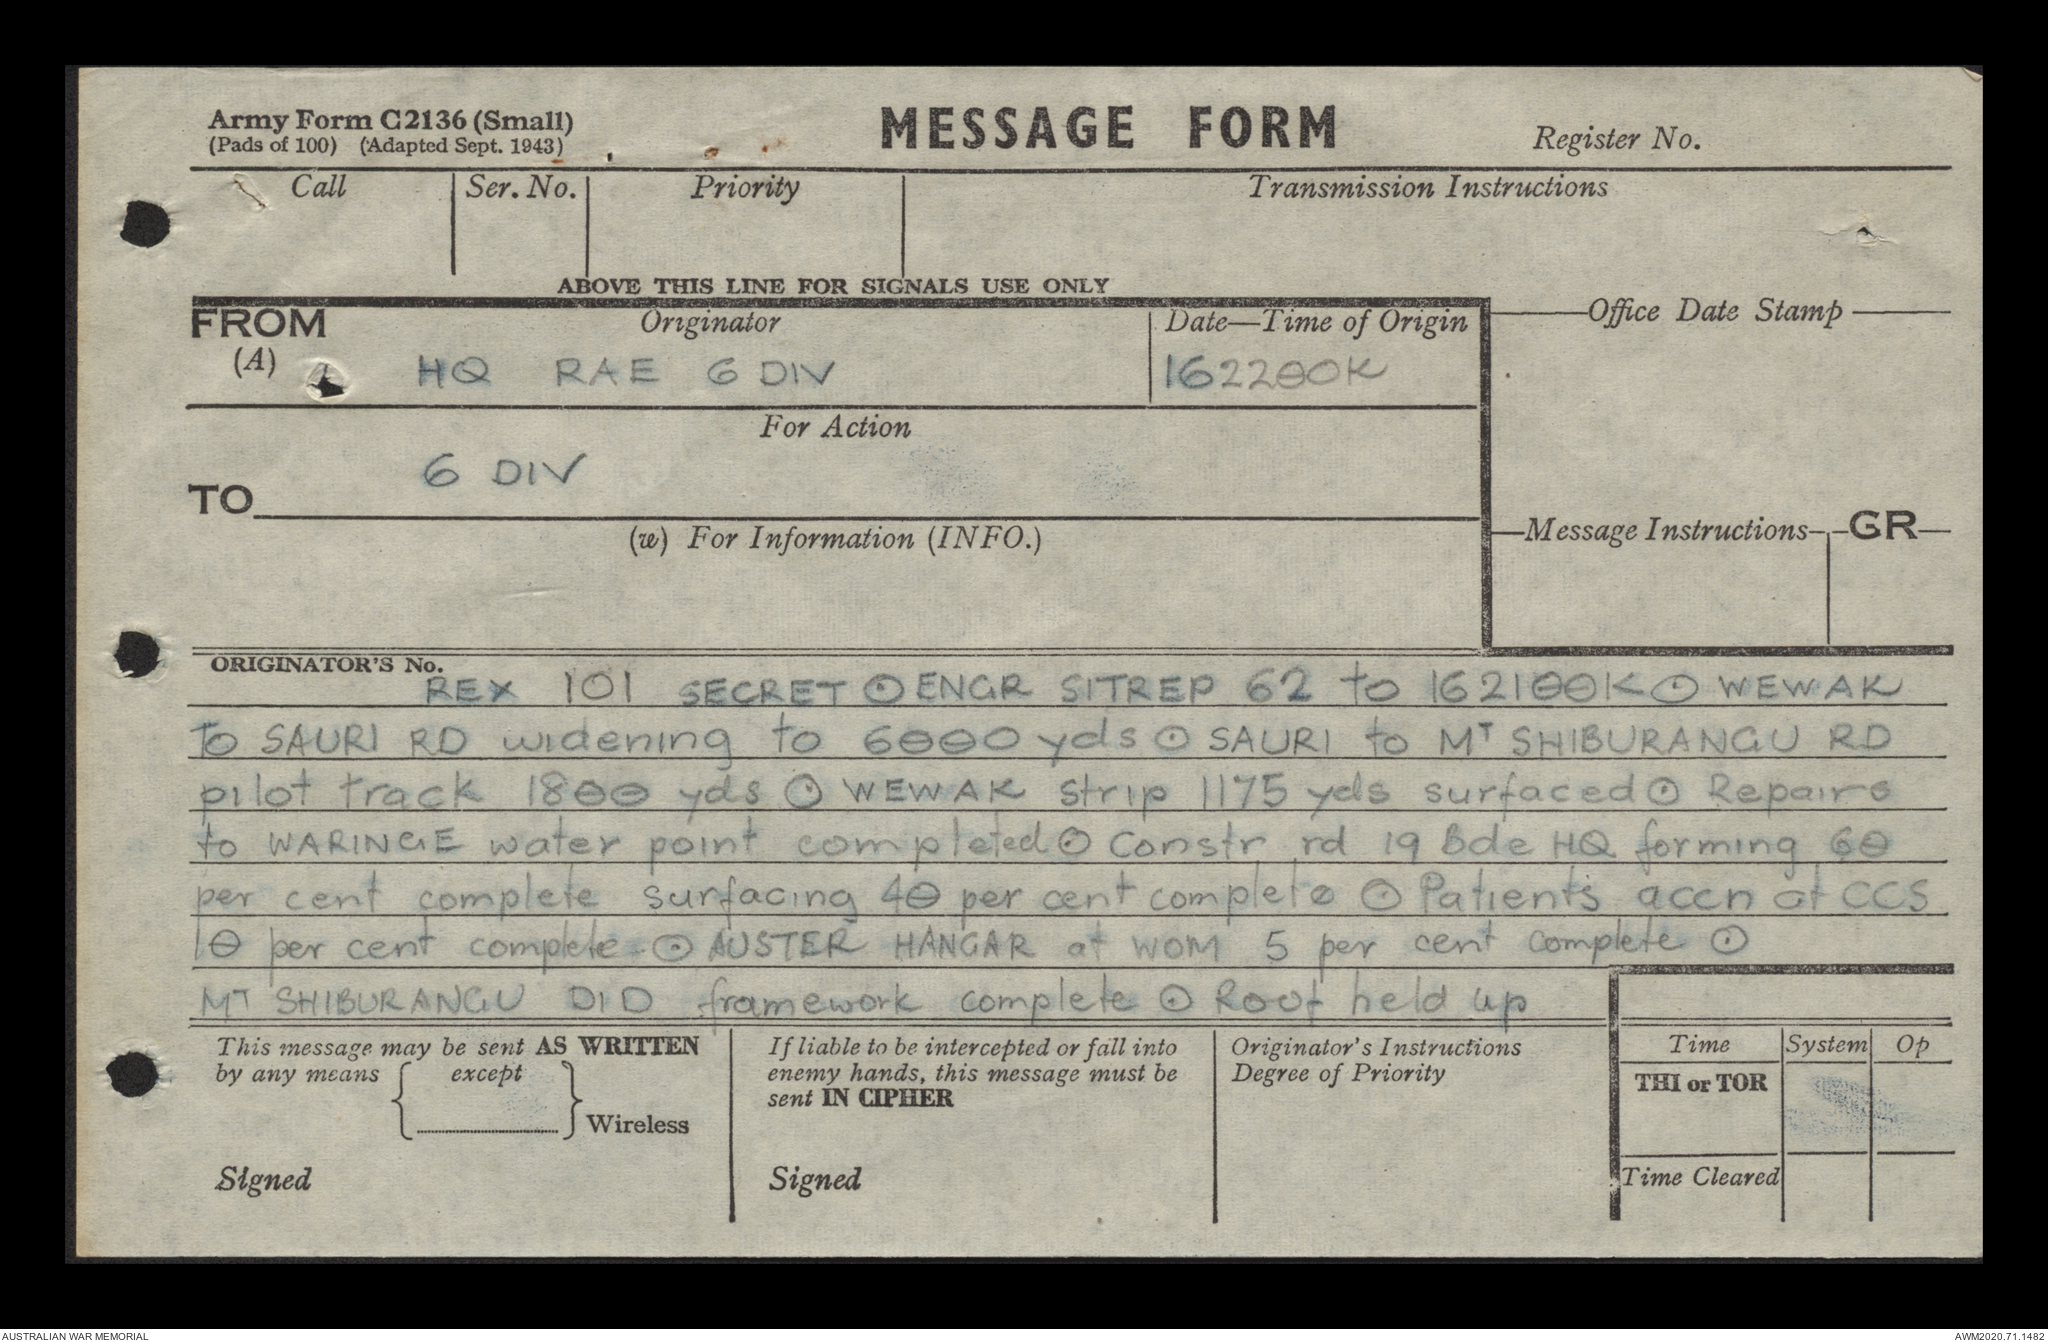 Army Form C2136 (Small)
(Pads of 100) (Adapted Sept. 1943)
MESSAGE FORM
Register No.
Call
Ser. No.
Priority
Transmission Instructions
ABOVE THIS LINE FOR SIGNALS USE ONLY
FROM
(A)
Originator
HQ RAE 6 DIV
Date—Time of Origin
162200K
Office Date Stamp
For Action
TO
6 DIV
(w) For Information (INFO.)
Message Instructions
GR
ORIGINATOR'S No.
REX 101 SECRET ⊙ ENGR SITREP 62 to 162100K ⊙ WEWAK
to SAURI RD widening to 6000 yds ⊙ SAURI to MT SHIBURANGU RD
pilot track 1800 yds ⊙ WEWAK strip 1175 yds surfaced ⊙ Repairs
to WARINGE water point completed ⊙ Constr rd 19 Bde HQ forming 60
per cent complete surfacing 40 per cent complete ⊙ Patients accn at CCS
10 per cent complete ⊙ AUSTER HANGAR at WOM 5 per cent complete ⊙
MT SHIBURANGU DID framework complete ⊙ Roof held up
This message may be sent AS WRITTEN
by any means except
Wireless
Signed
If liable to be intercepted or fall into
enemy hands, this message must be
sent IN CIPHER
Signed
Originator's Instructions
Degree of Priority
Time
System
Op
THI or TOR
Time Cleared
AUSTRALIAN WAR MEMORIAL
AWM2020.71.1482